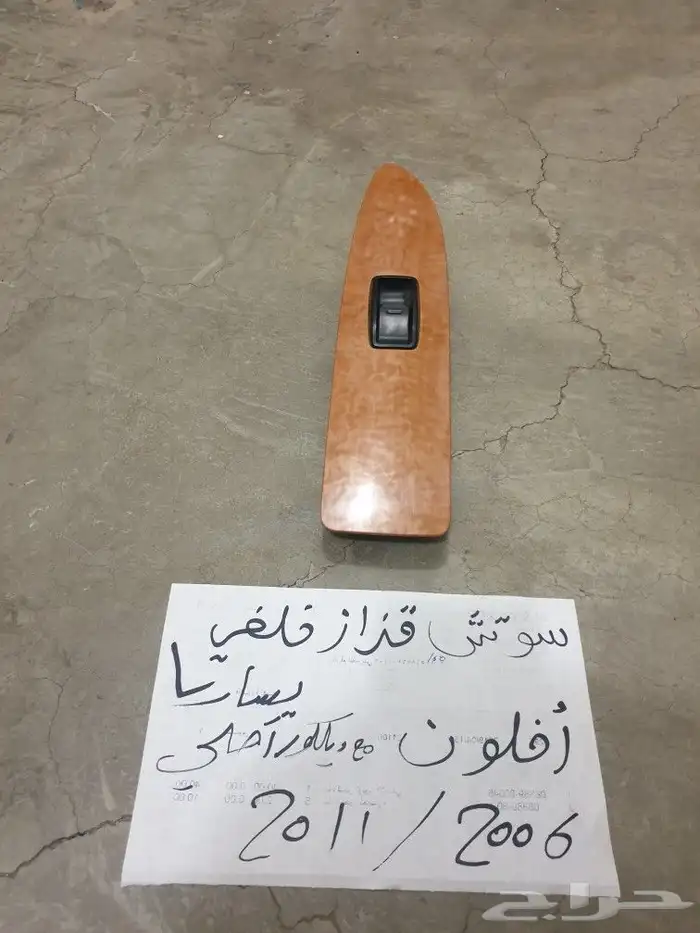 سوتش قزاز خلفي
يسار
أفلون مع ديكور أصلي
2011/2006
حراج